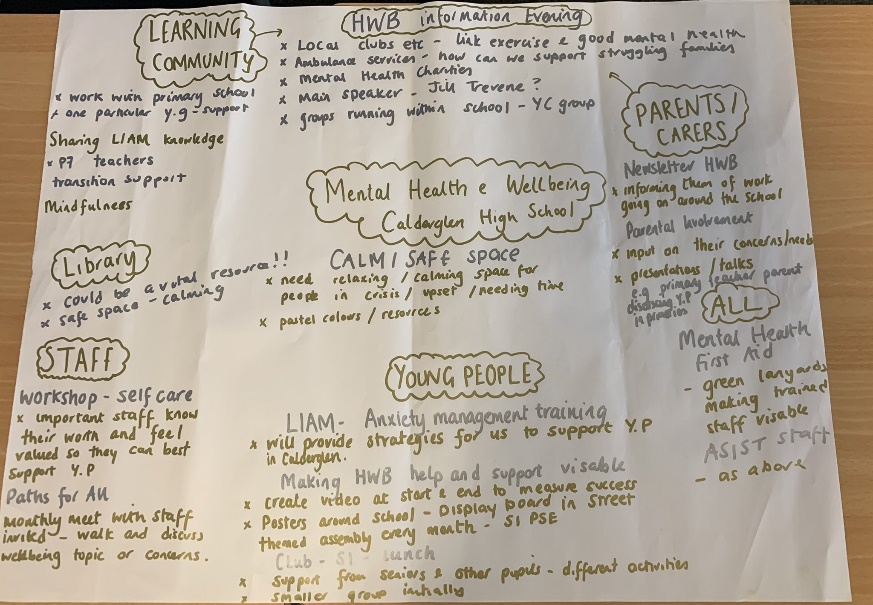 LEARNING
COMMUNITY
x work with primary school
x one particular y.g - support
Sharing LIAM knowledge
x P7 teachers
transition support
Mindfulness
HWB information Evening
x Local clubs etc - link exercise e good mental health
x Ambulance services - how can we support struggling families
x Mental Health Charities
x Main speaker - Jill Trevene?
x groups running within school - YC group
PARENTS/
CARERS
Newsletter HWB
x informing them of work
going on around the school
Parental Involvement
x input on their concerns/needs
x presentations / talks
e.g. primary teacher parent
Y.P
in
Mental Health e Wellbeing
Calderglen High School
CALM / SAFE SPACE
x need relaxing / calming space for
people in crisis / upset / needing time
x pastel colours / resources
Library
x could be a vital resource!!
x safe space - calming
ALL
Mental Health
First Aid
- green lanyards
making trained
staff visable
ASIST Staff
- as above
STAFF
Workshop - self care
x important staff know
their worth and feel
valued so they can best
support Y.P
Paths for All
Monthly meet with staff
invited - walk and discuss
wellbeing topic or concerns.
YOUNG PEOPLE
LIAM - Anxiety management training
x will provide strategies for us to support Y.P
in Calderglen.
Making HWB help and support visable
x Create video at start & end to measure success
x Posters around school - Display board in Street
themed assembly every month - S1 PSE
Club - S1 - Lunch
x Support from seniors & other pupils - different activities
x smaller group initially